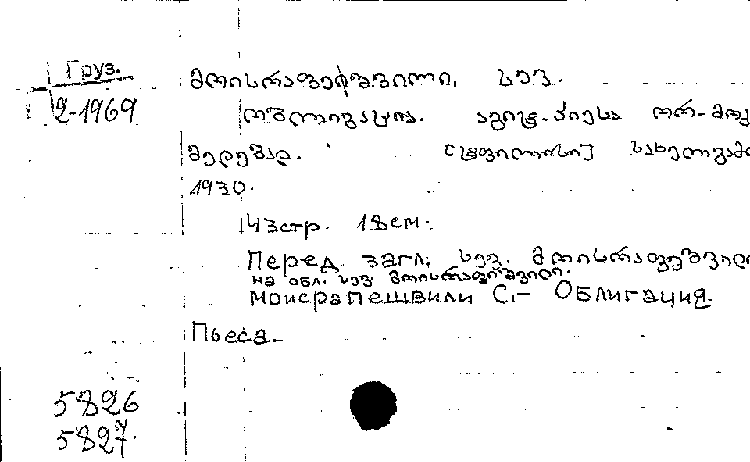 Груз.
2-1969
მოისრაფეიშვილი, სევ.
ობლიგაცია. აგიტ. პიესა ორ-მოქ
მედებად. [ტფილისი] სახელგამ
1930.
43стр. 18см.
Перед загл. სევ. მოისრაფეშვილი
на обл. სევ მოისრაფიშვილი.
Моисрапешвили С.- Облигация.
Пьеса.
5826
5827.